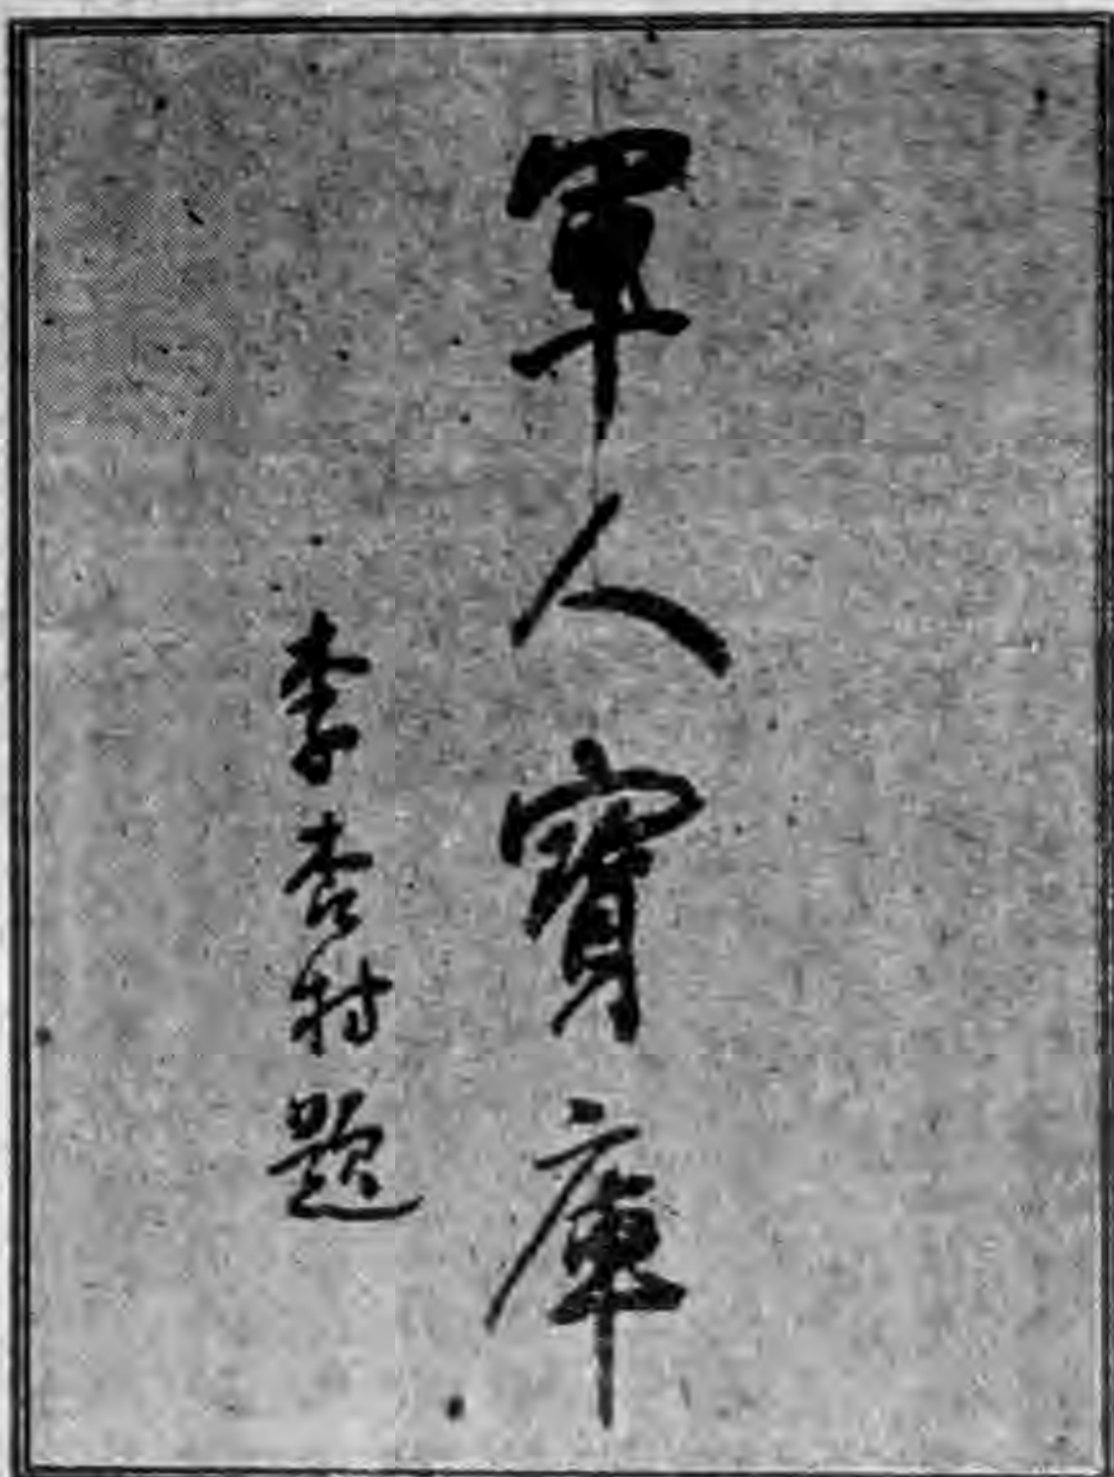 軍人寶庫
李杏村題